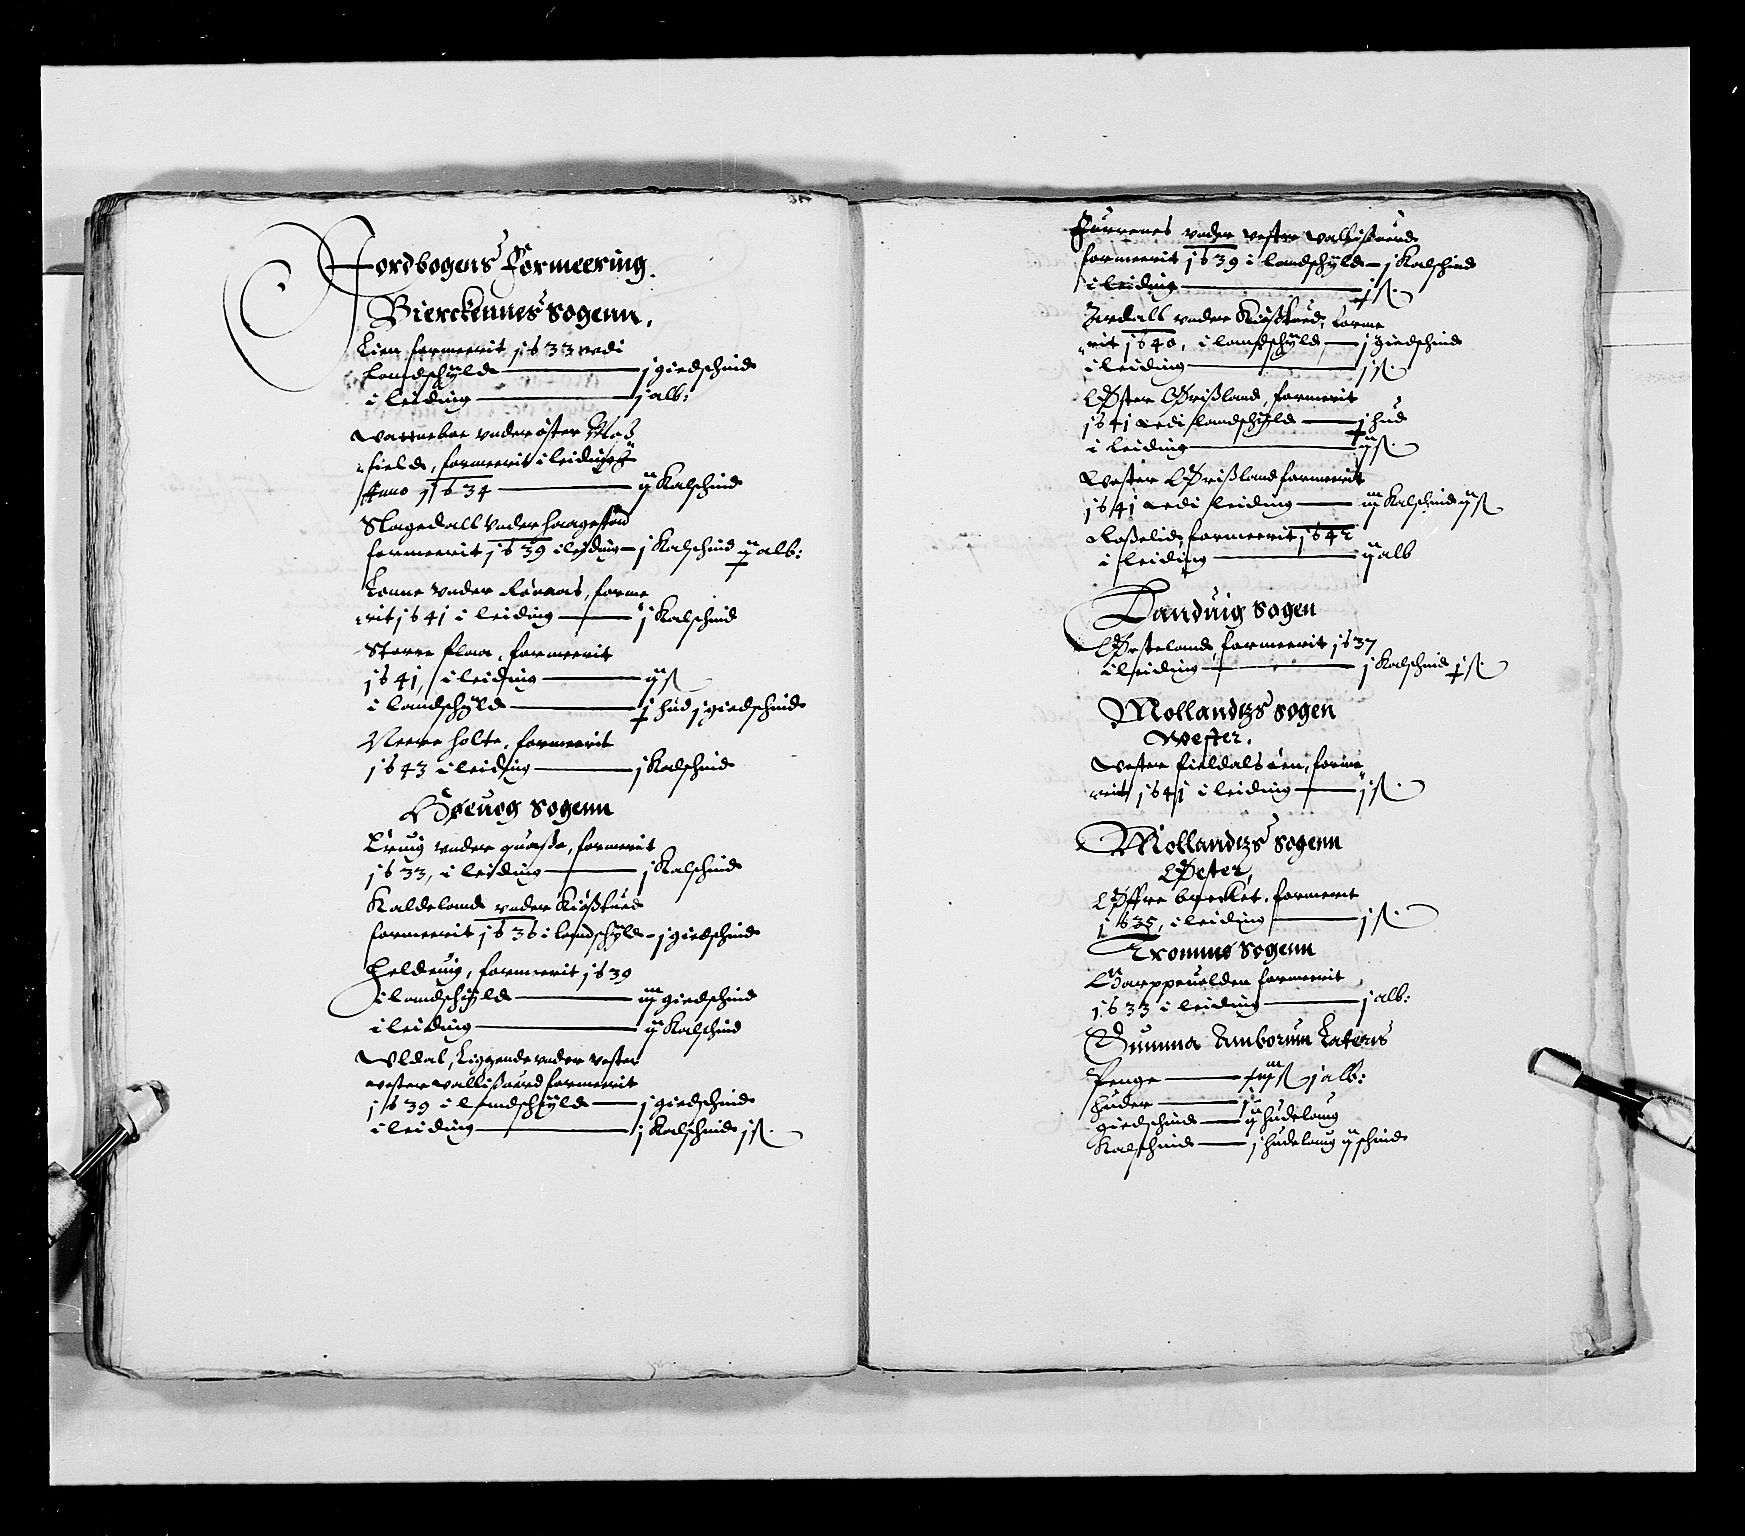 Jordbogens Formeering.
Bierckennes Sogenn.
Lien formeerit 1633 medt
Landschyld — j giedschind
i leiding — j alb:
Wattneboe vnder øster
field, formeerit i leiding
Anno 1634 — ij Kalschind
Slagedall vnder
formeerit 1639 i leiding — j Kalschind ij alb:
vnder forme
rit 1641 i leiding — j Kalschind
Større flaa, formeerit
1641, i leiding — ij ß
i landschyld — j hud j giedschind
Neere holte, formeerit
1643 i leiding — j Kalschind
Sogenn
vnder formerit
1633, i leiding — j Kalschind
Kaldeland vnder
formeerit 1636 i landschyld — j giedschind
formeerit 1639
i landschyld — iij giedschind
i leiding — ij Kalschind
Vldal, liggende vnder vester
vester formerit
1639 i landschyld — j giedschind
i leiding — j Kalschind j ß.
vnder vestre
formeerit 1639 i landschyld — j Kalschind
i leiding — j ß.
vnder forme
rit 1640, i landschyld — j giedschind
i leiding — j ß.
Øster Grißland, formerit
1641 medt landschyld — j hud
i leiding — ij ß.
Vester Grißland formeerit
1641 medt leiding — iij Kalschind ij ß
formeerit 1642
i leiding — ij alb
Landuig Sogen
formeerit 1637
i leiding — j Kalschind j ß.
Mollandtzs Sogen
Wester.
Vester forme
rit 1641 i leiding — j ß.
Mollandtzs Sogenn
Øster,
formerit
1635, i leiding — j ß.
Tromms Sogenn
formeerit
1633 i leiding — j alb:
Summa Amborum Lateris
Penge — ß j alb:
Huder — ij
giedschind — ij hudelaug
Kalschind — j hudelaug ij schind